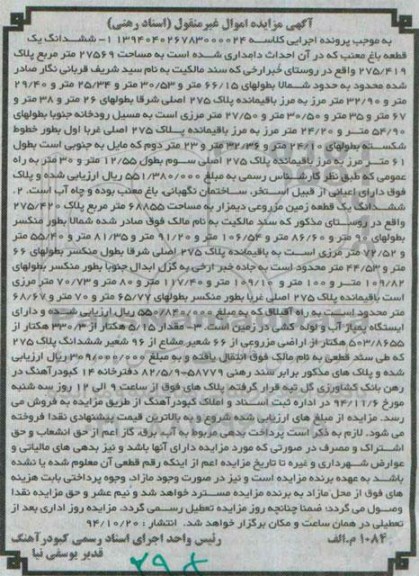 آگهی مزایده اموال غیرمنقول (اسناد رهنی)
به موجب پرونده اجرایی کلاسه ۱۳۹۴۰۴۰۲۶۷۸۳۰۰۰۰۲۴ ۱- ششدانگ یک
قطعه باغ معنب که در آن احداث دامداری شده است به مساحت ۲۷۵۶۹ متر مربع پلاک
۲۷۵/۴۱۹ واقع در روستای خبارارخی که سند مالکیت به نام سید شریف قربانی نگار صادر
شده محدود به حدود شمالا بطولهای ۶۶/۱۵ متر و ۳۰/۵۳ متر و ۲۵/۳۴ متر و ۲۹/۴۰
متر و ۳۲/۹۰ متر مرز به مرز باقیمانده پلاک ۲۷۵ اصلی شرقا بطولهای ۲۶ متر و ۳۸ متر و
۶۷ متر و ۳۵ متر و ۳۰/۵۰ متر و ۲۷/۵۰ متر مرزی است به مسیل رودخانه جنوبا بطولهای
۵۴/۹۰ متر و ۲۰/۲۴ متر مرز به مرز باقیمانده پلاک ۲۷۵ اصلی غربا اول بطور خطوط
شکسته بطولهای ۲۴/۱۰ متر و ۳۲/۳۶ متر و ۲۳ متر دوم که مایل به جنوبی است بطول
۶۱ متر مرز به مرز باقیمانده پلاک ۲۷۵ اصلی سوم بطول ۱۲/۵۵ متر و ۳۰ متر به راه
عمومی که طبق نظر کارشناس رسمی به مبلغ ۵۵۱/۳۸۰/۰۰۰ ریال ارزیابی شده و پلاک
فوق دارای اعیانی از قبیل استخر، ساختمان نگهبانی، باغ معنب بوده و چاه آب است. ۲.
ششدانگ یک قطعه زمین مزروعی دیمزار به مساحت ۶۸۸۵۵ متر مربع پلاک ۲۷۵/۴۲۰
واقع در روستای مذکور که سند مالکیت به نام مالک فوق صادر شده شمالا بطور منکسر
بطولهای ۹۲ متر و ۸۶/۶۰ متر و ۱۰۶/۵۴ متر و ۹۱/۲۰ متر و ۸۱/۳۵ متر و ۵۵/۴۰ متر و
۷۲/۵۲ متر مرزی است به باقیمانده پلاک ۲۷۵ اصلی شرقا بطول منکسر بطولهای ۶۶
متر و ۴۴/۵۳ متر محدود است به جاده خبر ارخی به گزل ابدال جنوبا بطور منکسر بطولهای
۱۰۹/۸۲ متر و ۱۰۰ متر و ۱۰۹/۱۰ متر و ۱۱۷/۴۰ متر و ۸۰ متر و ۷۰/۷۳ متر مرزی
است باقیمانده پلاک ۲۷۵ اصلی غربا بطور منکسر بطولهای ۶۵/۷۷ متر و ۷۰ متر و ۶۸/۶۷
متر محدود است به راه آقبلاق که به مبلغ ریال ارزیابی شده و دارای
ایستگاه پمپاژ آب و لوله کشی در زمین است. ۳- مقدار ۵/۱۵ هکتار از ۳۳۰/۳ هکتار از
۵۰۳/۸۶۵۵ هکتار از اراضی مزروعی از ۶۶ شعیر مشاع از ۹۶ شعیر ششدانگ پلاک ۲۷۵
که طی سند قطعی به نام مالک فوق انتقال یافته و به مبلغ ۳۰۹/۰۰۰/۰۰۰ ریال ارزیابی
شده و پلاک های مذکور برابر سند رهنی ۵۸۷۷۹-۸۲/۵/۹ دفترخانه ۱۴ کبودرآهنگ در
رهن بانک کشاورزی گل تپه قرار گرفته. پلاک های فوق از ساعت ۹ الی ۱۲ روز سه شنبه
مورخ ۹۴/۱۱/۶ در اداره ثبت اسناد و املاک کبودرآهنگ از طریق مزایده به فروش می
رسد. مزایده از مبلغ های ارزیابی شده شروع و به بالاترین قیمت پیشنهادی نقدا فروخته
می شود. لازم به ذکر است پرداخت بدهی مربوط به آب، برق، گاز اعم از حق انشعاب و حق
اشتراک و مصرف در صورتی که مورد مزایده دارای آنها باشد و نیز بدهی های مالیاتی و
عوارض شهرداری و غیره تا تاریخ مزایده اعم از اینکه رقم قطعی آن معلوم شده یا نشده
باشد به عهده برنده مزایده است و نیز در صورت وجود مازاد، وجوه پرداختی بابت هزینه
های فوق از محل مازاد به برنده مزایده مسترد خواهد شد و نیم عشر و حق مزایده نقدا
وصول می گردد؛ ضمنا چنانچه روز مزایده تعطیل رسمی گردد، مزایده روز اداری بعد از
تعطیلی در همان ساعت و مکان برگزار خواهد شد. انتشار: ۹۴/۱۰/۲۰
۱۰۸۴ م.الف رئیس واحد اجرای اسناد رسمی کبودرآهنگ
قدیر یوسفی نیا